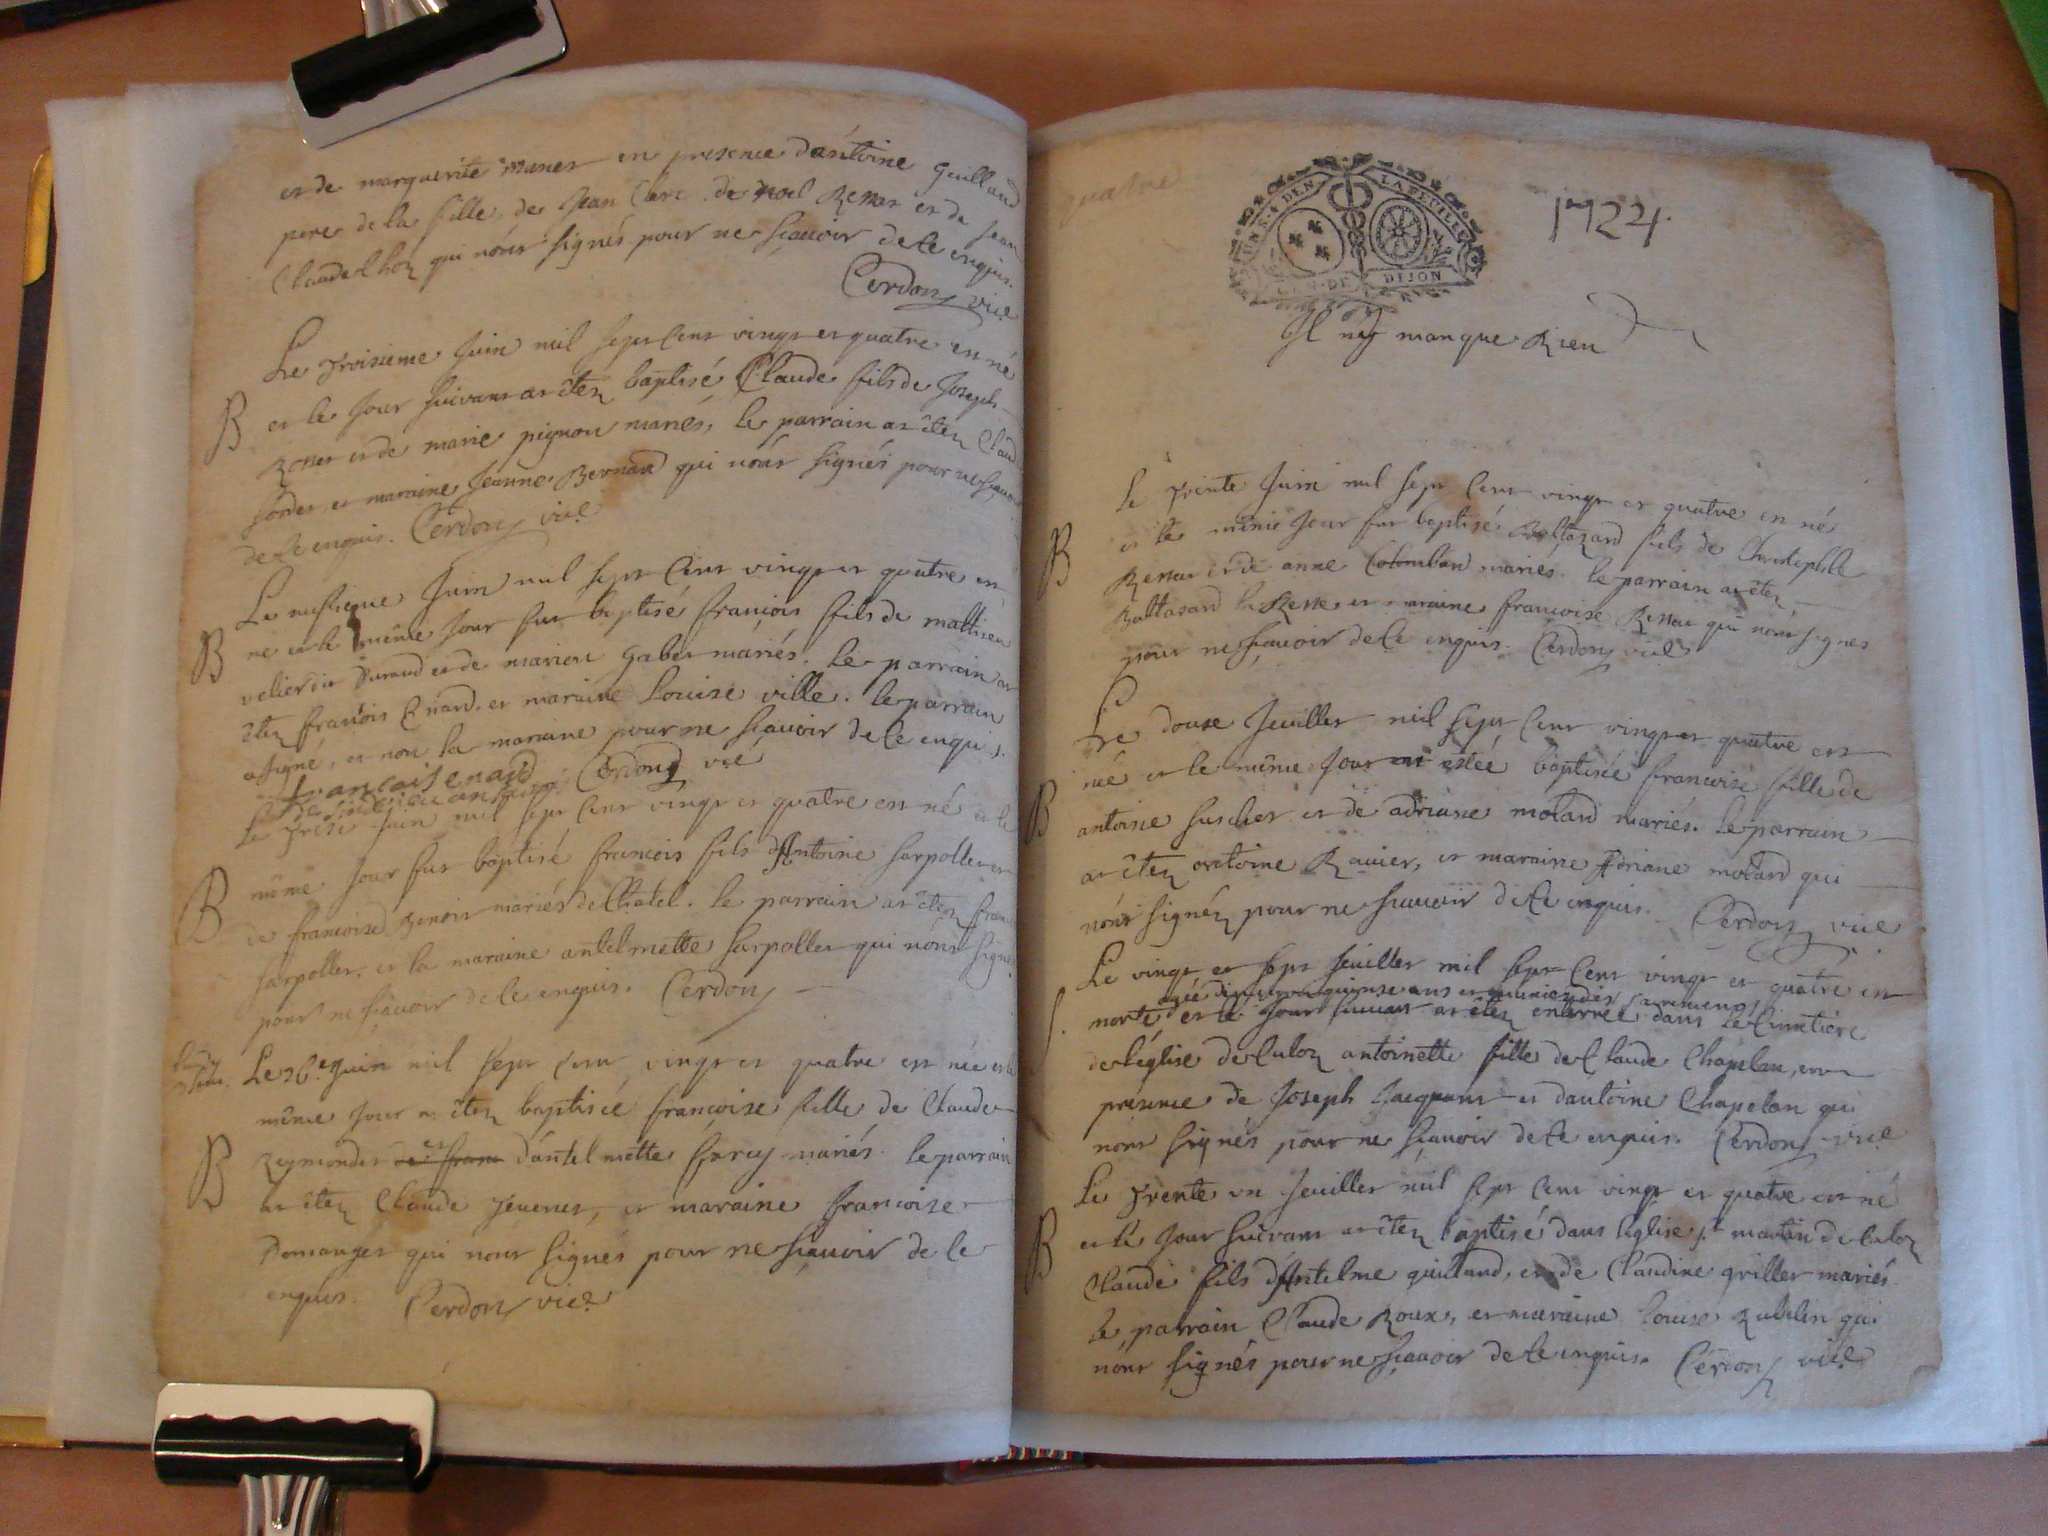 et de marguerite manet en presence dantoine Guilland
pere de la fille, de Jean Clerc de noel Rettat et de Jean
Claude qui nónt signés pour ne sçauoir de ce enquis.
Cerdon vic.
Le troisieme Juin mil sept cent vingt et quatre est né
B et le Jour suivant at étez baptisé Claude fils de Joseph
et de marie pignon mariés, le parrain at étez Claud
et maraine Jeanne Bernard qui nónt signés pour ne sçauoir
de ce enquis. Cerdon vic.
Le Juin mil sept cent vingt et quatre est
B né et le même Jour fut baptisé françois fils de mathieu
velier dit Durand et de marion Gabet mariés. le parrain at
étez françois Enard et maraine Louise ville. le parrain
a signé, et non la maraine pour ne sçauoir de ce enquis.
francois enard Cerdon vic
Le treze Juin mil sept cent vingt et quatre est né et le
B même Jour fut baptisé francois fils dAntoine Sarpollet et
de francoise Benoit mariés de Chatel. le parrain at étez fran
Sarpollet, et la maraine antelmette Sarpollet qui nónt signé
pour ne sçauoir de ce enquis. Cerdon
Le 26e Juin mil sept cent vingt et quatre est née et le
même Jour at étez baptisée françoise fille de Claude
B Reymondet et dántelmette mariés. le parrain
at étez Claude Jevenet, et maraine francoise
Domanget qui nont signés pour ne sçauoir de ce
enquis. Cerdon vic.
quatre
LA FEUILLE
GEN. DE DIJON
1724.
Il ny manque Rien
le trente Juin mil sept cent vingt et quatre est né
B et le même Jour fut baptisé Baltazard fils de Christophle
Rettat et de anne Colomban mariés. le parrain at étez
Baltasard et maraine francoise Rettat qui nónt signés
pour ne sçauoir de ce enquis. Cerdon vic.
Le douse Jeuillet mil sept cent vingt et quatre est
née et le même Jour at estée baptisée francoise fille de
B antoine suchet et de adriane molard mariés. le parrain
at étez antoine Ravier, et maraine Adriane molard qui
nónt signéz pour ne sçauoir de ce enquis. Cerdon vic.
Le vingt et sept Jeuillet mil sept cent vingt et quatre est
agée denviron quinse ans et munie des sacremens
S. morte et le Jour suivant at étez enterrée dans le Cimetiére
de l'église de Culoz antoinette fille de Claude Chapelan, en
présence de Joseph Jacquant et dántoine Chapelan qui
nónt signés pour ne sçauoir de ce enquis. Cerdon vic.
Le trente un Jeuillet mil sept cent vingt et quatre est né
B et le Jour suivant at étez baptisé dans leglise st martin de Culoz
Claude fils dAntelme guilland, et de Claudine grillet mariés.
le parrain Claude Roux, et maraine Louise qui
nónt signés pour ne sçauoir de ce enquis. Cerdon vic.